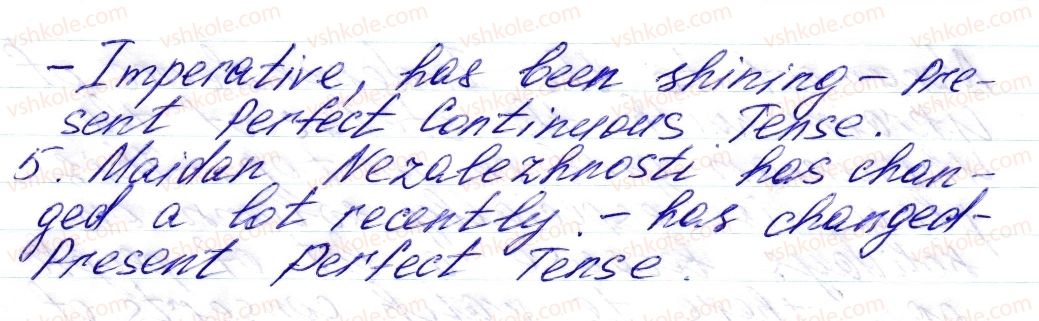 - Imperative, has been shining - Pre-
sent Perfect Continuous Tense.
5. Maidan Nezalezhnosti has chan-
ged a lot recently. - has changed -
Present Perfect Tense.